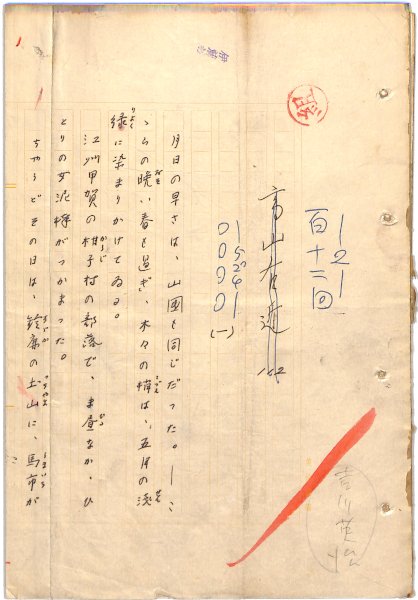 吉川英治
121
百十二回
高山右近
112
01050401
(一)
月日の早さは、山國も同じだった。――こ
ゝらの晩い春も過ぎ、木々の梢は、五月の浅
緑に染まりかけてゐる。
江州甲賀の柑子村の部落で、ま昼なか、ひ
とりの女泥棒がつかまった。
ちやうどその日は、鈴鹿の土山に、馬市が